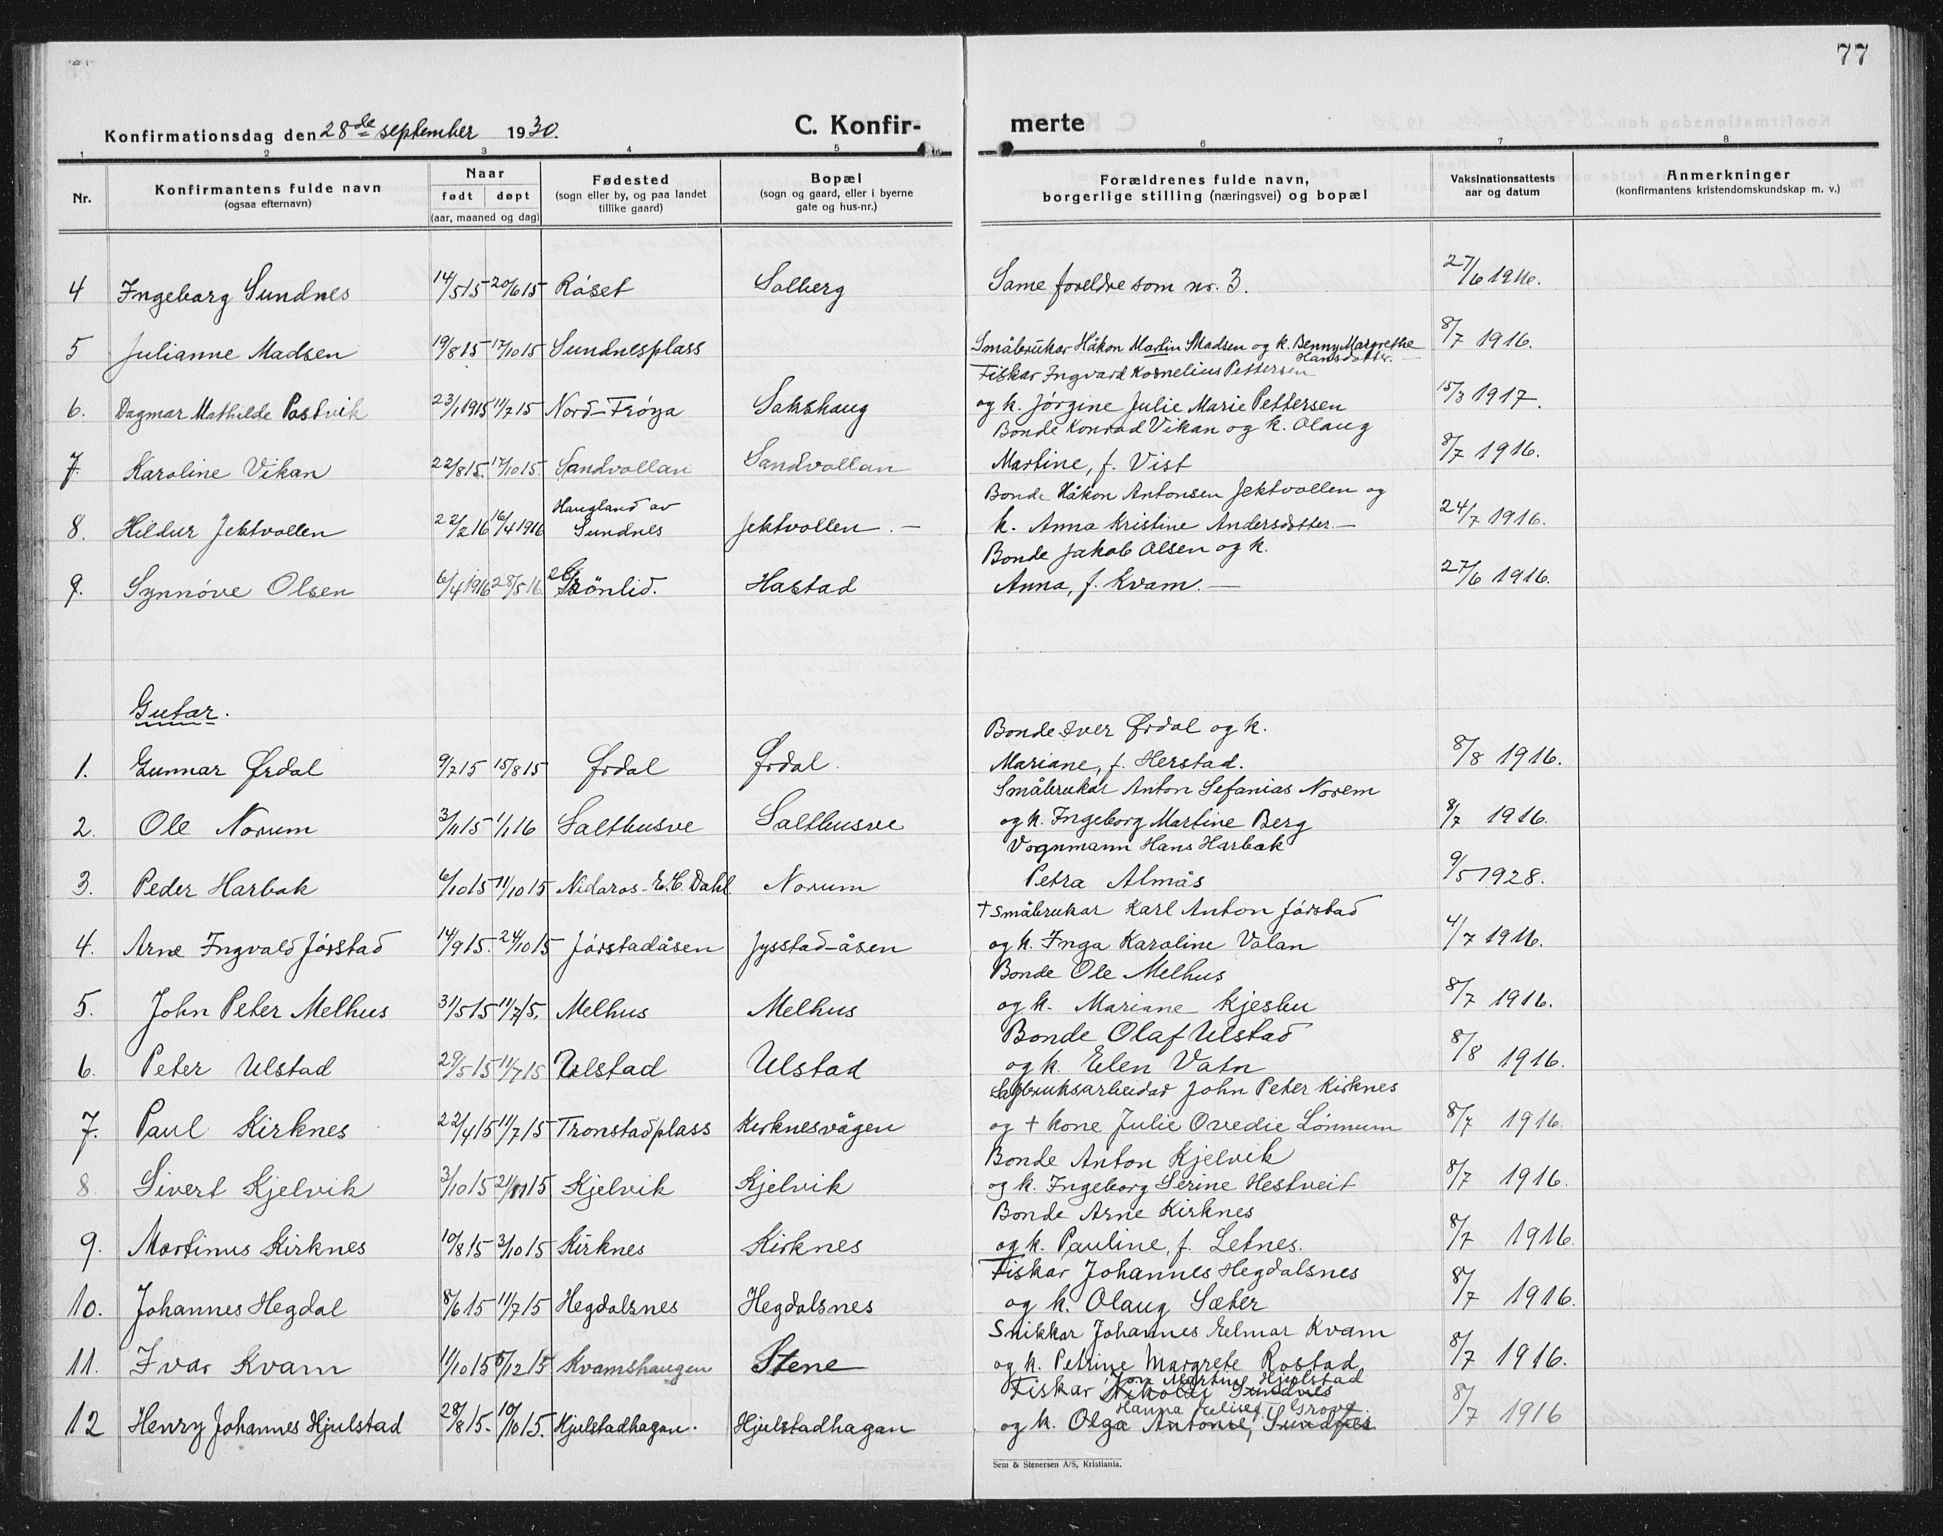 77
Konfirmationsdag den 28de september 1930.
C. Konfirmerte
1 2 3 4 5 6 7 8
Nr.
Konfirmantens fulde navn
(ogsaa efternavn)
Naar
født døpt
(aar, maaned og dag)
Fødested
(sogn eller by, og paa landet
tillike gaard)
Bopæl
(sogn og gaard, eller i byerne
gate og hus-nr.)
Forældrenes fulde navn,
borgerlige stilling (næringsvei) og bopæl
Vaksinationsattests
aar og datum
Anmerkninger
(konfirmantens kristendomskundskap m. v.)
4 Ingeborg Sundnes 14/5 15 20/6 15 Røset Solberg Same foreldre som nr. 3. 27/6 1916.
5 Julianne Madsen 19/8 15 17/10 15 Sundnesplass Småbrukar Håkon Martin Madsen og k. Benny Margrethe Hansdotter. 8/7 1916.
Fiskar Ingvard Kornelius Pettersen
6. Dagmar Mathilde Postvik 23/1 1915 11/7 15 Nord-Frøya Sakshaug og k. Jørgine Julie Marie Pettersen 15/3 1917.
Bonde Konrad Vikan og k. Olaug
7. Karoline Vikan 22/8 15. 17/10 15. Sandvollan Sandvollan Martine, f. Vist 8/7 1916.
Haugland av Bonde Håkon Antonsen Jektvollen og
8. Hildur Jektvollen 22/2 16 16/4 1916 Sundnes Jektvollen. — k. Anna Kristine Andersdotter — 24/7 1916.
Bonde Jakob Olsen og k.
9. Synnøve Olsen 6/4 1916 28/5 16 Grönlid. Hastad Anna, f. Kvam. — 27/6 1916.
Gutar.
Bonde Iver Ørdal og k.
1. Gunnar Ørdal 9/7 15 15/8 15 Ørdal Ørdal. Mariane, f. Herstad. 8/8 1916.
Småbrukar Anton Sefanias Norem
2. Ole Norum 3/11 15 1/1 16 Salthusve Salthusve og k. Ingeborg Martine Berg 8/7 1916.
Vognmann Hans Harbak
3. Peder Harbak 6/10 15 11/10 15 Nidaros - E. C. Dahl Norum Petra Almås 9/5 1928.
† Småbrukar Karl Anton Jørstad
4. Arne Ingvald Jørstad 14/9 15. 24/10 15 Jørstadåsen Jysstad-åsen og k. Inga Karoline Valan 4/7 1916.
Bonde Ole Melhus
5. John Peter Melhus 31/5 15 11/7 15. Melhus Melhus og k. Mariane Kjesbu 8/7 1916.
Bonde Olaf Ulstad
6. Peter Ulstad 29/5 15 11/7 15 Ulstad Ulstad og k. Elen Vatn 8/8 1916.
Sagbruksarbeidar John Peter Kirknes
7. Paul Kirknes 22/4 15 11/7 15 Tronstadplass Kirknesvågen og † kone Julie Ovedie Lønnum 8/7 1916.
Bonde Anton Kjelvik
8. Sivert Kjelvik 3/10 15 21/11 15 Kjelvik Kjelvik og k. Ingeborg Serine Hestveit 8/7 1916.
Bonde Arne Kirknes
9. Martinus Kirknes 10/8 15 3/10 15 Kirknes Kirknes og k. Pauline, f. Letnes. 8/7 1916.
Fiskar Johannes Hegdalsnes
10. Johannes Hegdal 8/6 15 11/7 15 Hegdalsnes Hegdalsnes og k. Olaug Sæter 8/7 1916.
Snikkar Johannes Eelmar Kvam
11. Ivar Kvam 11/10 15 5/12 15 Kvamshaugen Stene og k. Petrine Margrete Rostad 8/7 1916.
Jon Martin Hjulstad
Fiskar Nikolai Sundnes
Hanna Grove.
12 Henry Johannes Hjulstad 28/8 15. 10/10 15. Hjulstadhagan. Hjulstadhagan og k. Olga Antonie, Sundnes 8/7 1916
Sem & Stenersen A/S, Kristiania.